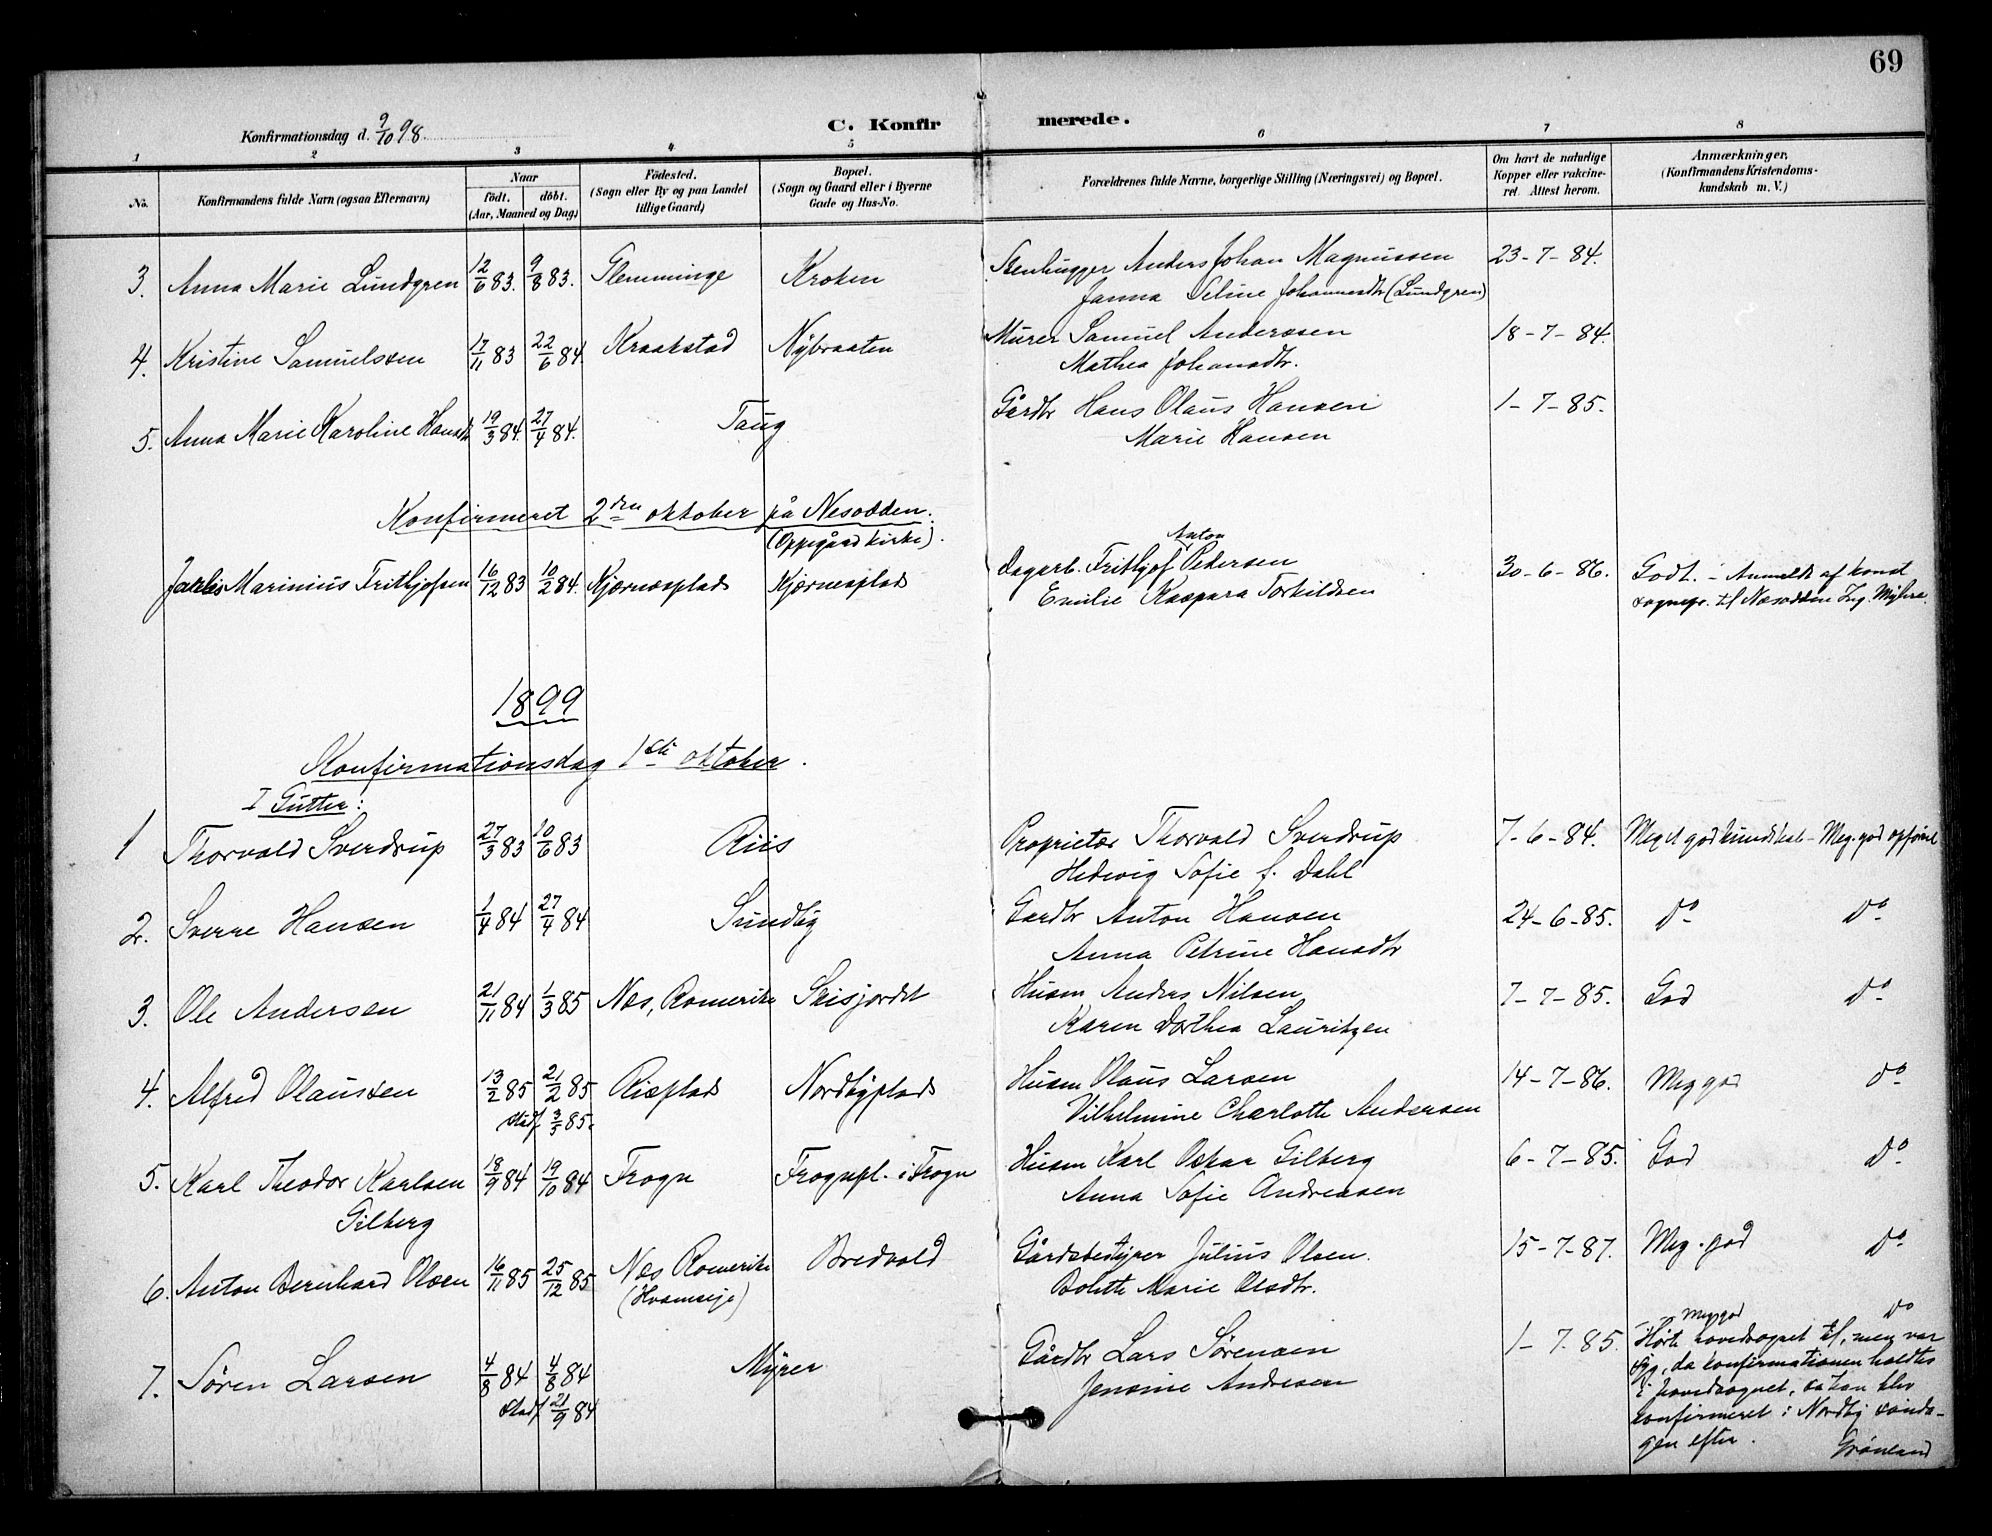 69
Konfirmationsdag d. 9/10 98.
C. Konfirmerede.
1 2 3 4 5 6 7 8
No.
Konfirmandens fulde Navn (ogsaa Efternavn)
Naar
födt. döbt.
(Aar, Maaned og Dag)
Födested.
(Sogn eller By og paa Landet
tillige Gaard)
Bopæl.
(Sogn og Gaard eller i Byerne
Gade og Hus-No.
Forældrenes fulde Navne, borgerlige Stilling (Næringsvei) og Bopæl.
Om havt de naturlige
Kopper eller vakcine-
ret. Attest herom.
Anmærkninger.
(Konfirmandens Kristendoms-
kundskab m. V.)
3. Anna Marie Lundgren 12/6 83. 9/8 83. Glemminge Kroken Stenhugger Anders Johan Magnussen 23-7-84.
Janna Seline Johannesdtr (Lundgren)
4. Kristine Samuelssen 17/11 83 22/6 84. Kraakstad Nybraaten Murer Samuel Anderssen 18-7-84.
Mathea Johansdtr.
5. Anna Marie Karoline Hansdtr 19/3 84. 27/4 84. Taug Gårdbr Hans Olaus Hansen 1-7-85.
Marie Hansen
Konfirmeret 2den oktober på Nesodden.
(Oppegård kirke).
Marinius Frithjofsen 16/12 83 10/2 84. Kjærnesplads Kjærnesplads Dagarb. Frithjof Anton Pedersen 30-6-86. Godt. - Anmeldt af konst
Emilie Kaspara Torkildsen sognepr. til Næsodden Ing. Myhre.
1899
Konfirmationsdag 1ste oktober.
I Gutter:
1 Thorvald Sverdrup 27/3 83 10/6 83 Riis Proprietær Thorvald Sverdrup 7-6-84. Meget god kundskab - Meg. god opførsel
Hedevig Sofie f. Dahl
2. Sverre Hansen 1/4 84 27/4 84 Sundby Gardbr Anton Hansen 24-6-85. Do Do
Anna Petrine Hansdtr
3. Ole Andersen 21/11 84 1/3 85 Næs, Romerike Skisjordet Husm Anders Nilsen 7-7-85. God Do
Karen Dorthea Lauritzen
4. Alfred Olaussen 13/2 85 21/2 85 Riisplads Nordbyplads Husm Olaus Larsen 14-7-86. Meg god Do
stadf 3/5 85. Vilhelmine Charlotte Andersen
5. Karl Theodor Karlsen 18/9 84 19/10 84 Frogn Frognpl. i Frogn Husm Karl Oskar Gilberg 6-7-85. God Do
Gilberg Anna Sofie Andreasen
6. Anton Bernhard Olsen 16/11 85 25/12 85 Næs Romerike Bredvold Gårdsbestyrer Julius Olsen. 15-7-87. Meg. god Do
(Hvamseje) Bolette Marie Olsdtr.
7. Søren Larsen 4/8 84 4/8 84 Myrer Gårdbr Lars Sørensen 1-7-85. Meg god Do
stadf 21/9 84 Jensine Andresen
Hørte hovedsognet til, men var
syg, da konfirmationen holdtes
i hovedsognet, så han blev
konfirmeret i Nordby sønda-
gen efter. Grønland